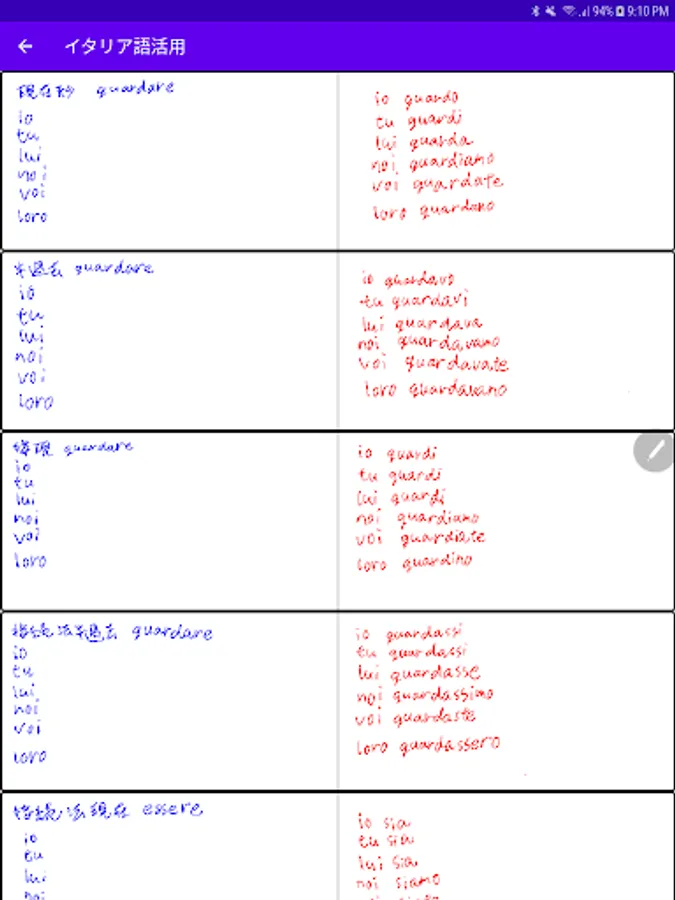 94% 9:10 PM
イタリア語活用
現在 guardare
io
tu
lui
noi
voi
loro
io guardo
tu guardi
lui guarda
noi guardiamo
voi guardate
loro guardano
半過去 guardare
io
tu
lui
noi
voi
loro
io guardavo
tu guardavi
lui guardava
noi guardavamo
voi guardavate
loro guardavano
接現 guardare
io
tu
lui
noi
voi
loro
io guardi
tu guardi
lui guardi
noi guardiamo
voi guardiate
loro guardino
接続法半過去 guardare
io
tu
lui
noi
voi
loro
io guardassi
tu guardassi
lui guardasse
noi guardassimo
voi guardaste
loro guardassero
接続法現在 essere
io
tu
lui
noi
io sia
tu sia
lui sia
noi siamo